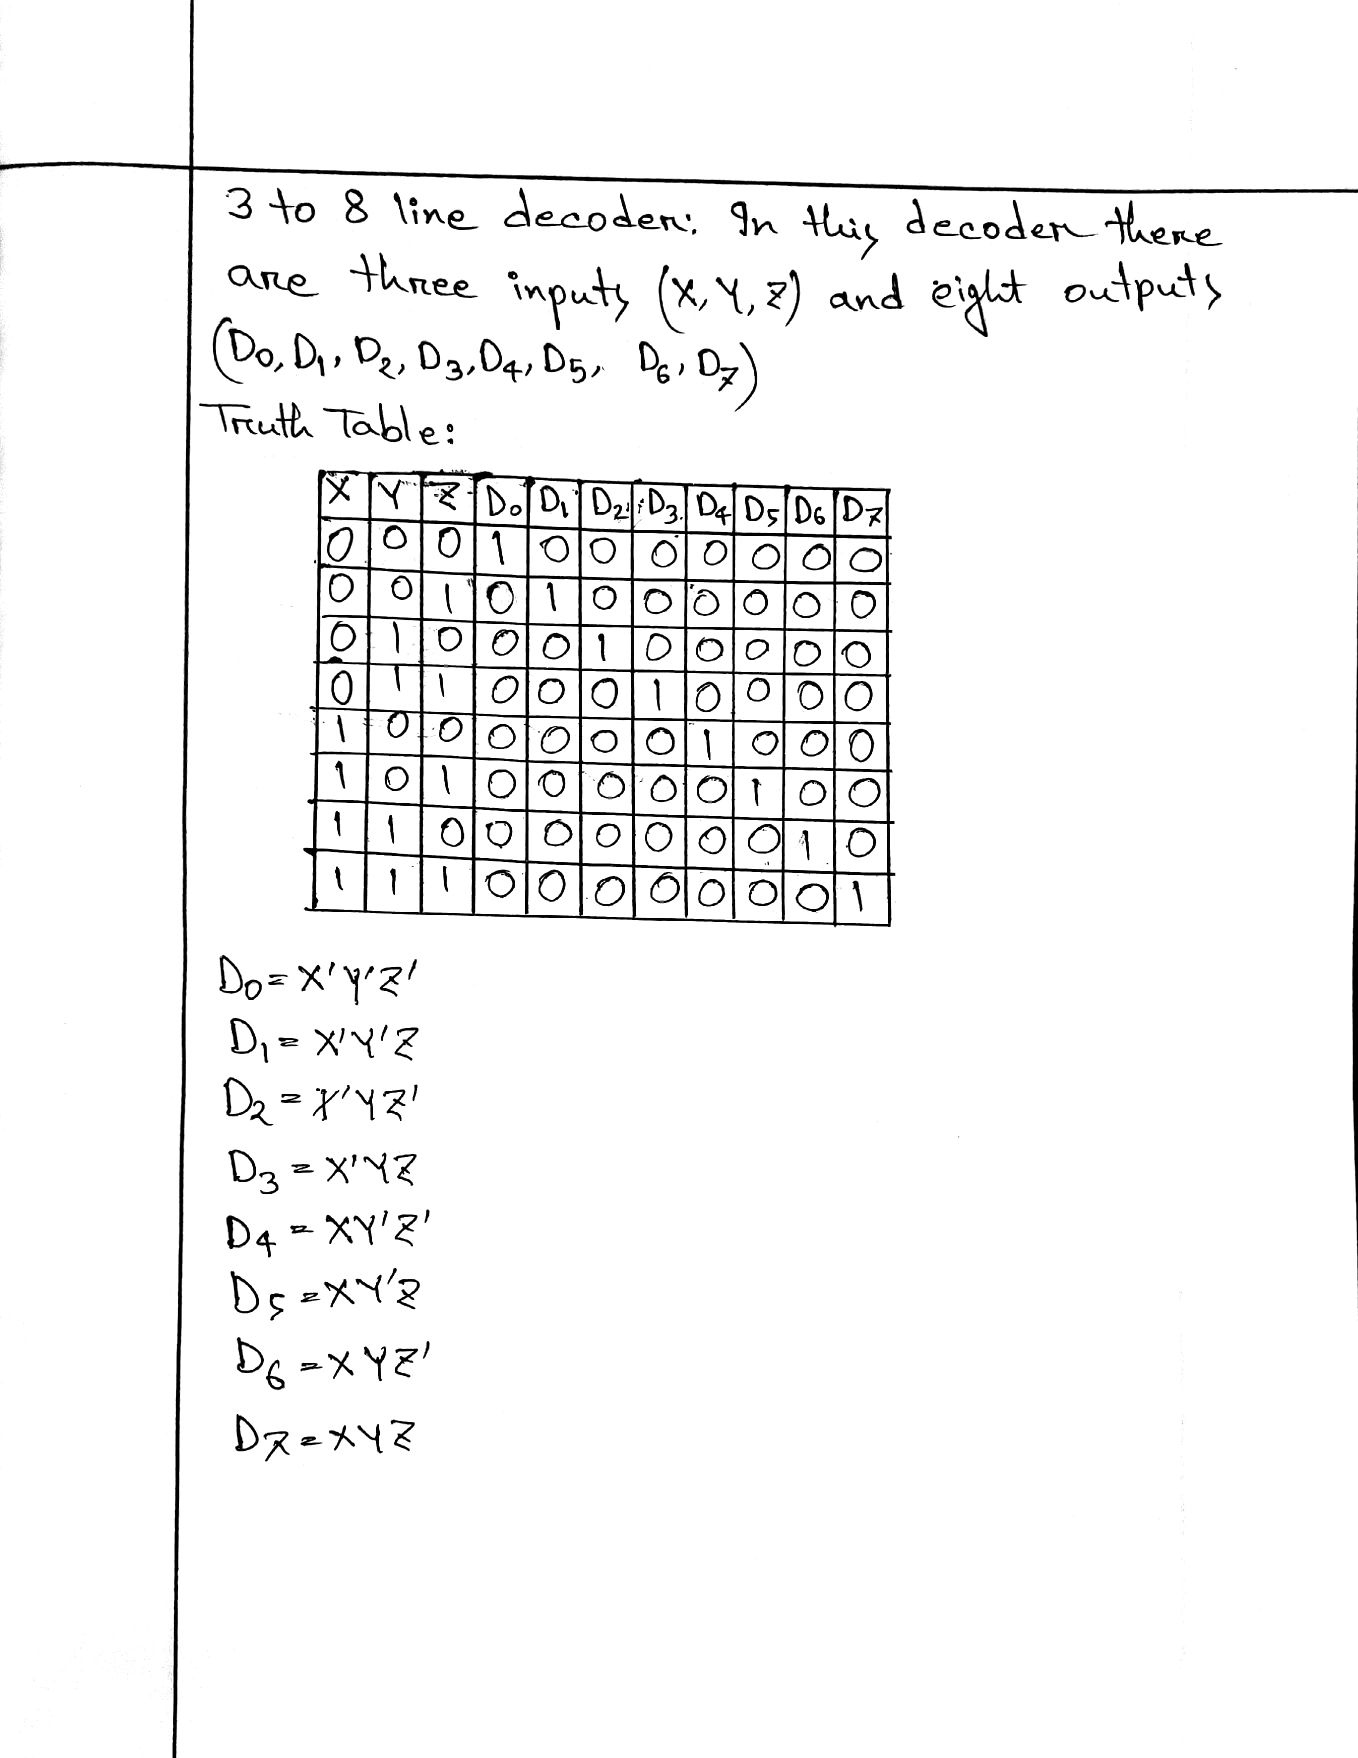 3 to 8 line decoder: In this decoder there
are three inputs (X, Y, Z) and eight outputs
(D0, D1, D2, D3, D4, D5, D6, D7)
Truth Table:
X Y Z D0 D1 D2 D3 D4 D5 D6 D7
0 0 0 1 0 0 0 0 0 0 0
0 0 1 0 1 0 0 0 0 0 0
0 1 0 0 0 1 0 0 0 0 0
0 1 1 0 0 0 1 0 0 0 0
1 0 0 0 0 0 0 1 0 0 0
1 0 1 0 0 0 0 0 1 0 0
1 1 0 0 0 0 0 0 0 1 0
1 1 1 0 0 0 0 0 0 0 1
D0 = X'Y'Z'
D1 = X'Y'Z
D2 = X'YZ'
D3 = X'YZ
D4 = XY'Z'
D5 = XY'Z
D6 = XYZ'
D7 = XYZ